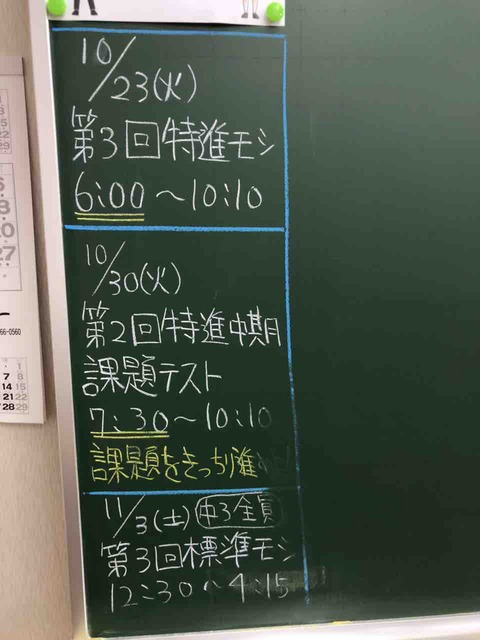 10/23(火)
第3回特進モシ
6:00～10:10
10/30(火)
第2回特進中期
課題テスト
7:30～10:10
課題をきっちり進
11/3(土) 中3全員
第3回標準モシ
12:30～4:15
66-0560
7 8
14 15
21 22
28 29